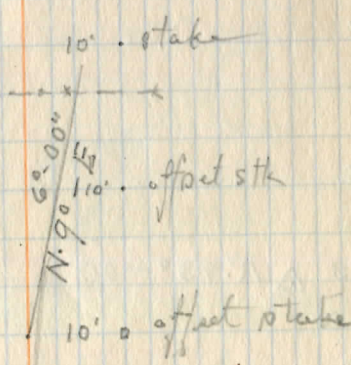 10' . stake
6°-00"
N. 9° E
110' . offset stk
10' offset stake